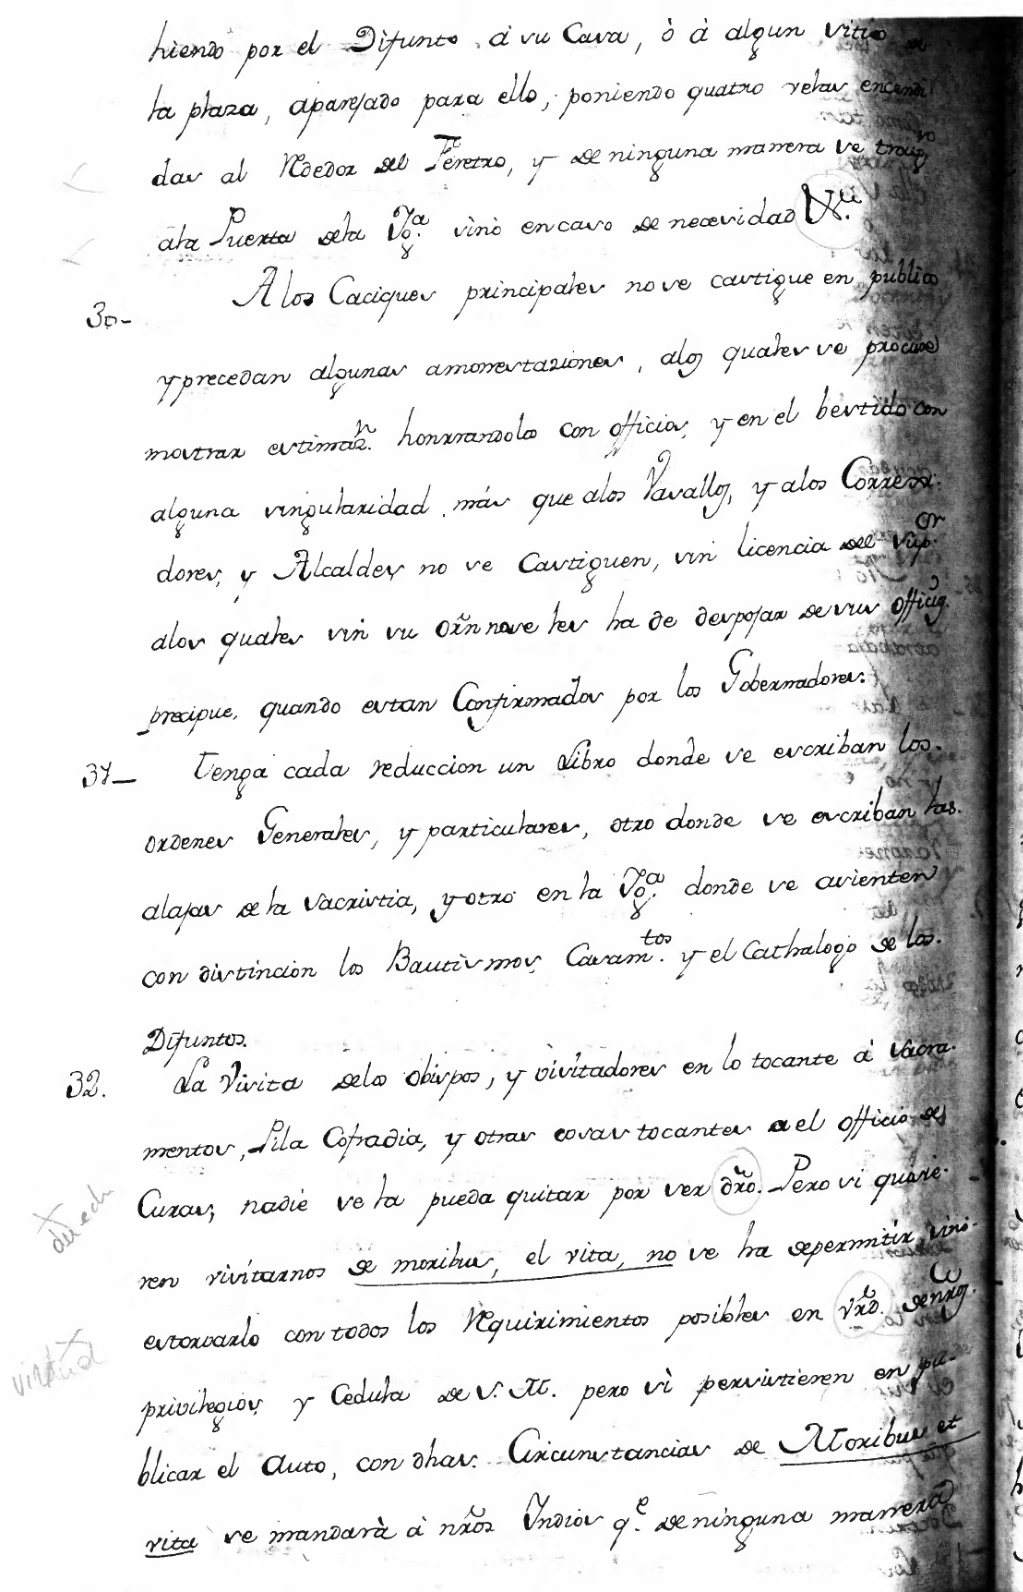 hiendo por el Difunto, á su Casa, ò á algun sitio de
la plaza, aparejado para ello, poniendo quatro velas encendi
das al Rededor del Feretro, y de ninguna manera se traiga
ala Puerta dela Yga. sino en caso de necesidad
30- A los Caciques principales no se castigue en publico
y precedan algunas amonestaziones, alos quales se procure
mostrar estimazn. honrrandolos con officios, y en el bestido con
alguna singularidad más que alos Vasallos, y alos Correxi-
dores, y Alcaldes no se Castiguen, sin licencia del Supor.
alos quales sin su Orñ no se les ha de despojar de sus officios,
precipue, quando estan Confirmados por los Gobernadores.
31- Tenga cada reduccion un Libro donde se escriban los
ordenes Generales, y particulares, otro donde se escriban las
alajas de la Sacristia, y otro en la Yga. donde se asienten
con distincion los Bautismos, Casamtos. y el Cathalogo de los
Difuntos.
32. La Visita delos Obispos, y visitadores en lo tocante á Sacra-
mentos, Pila Cofradia, y otras cosas tocantes a el officio de
Curas, nadie se la pueda quitar por ser dr̃o. Pero si quisie-
derech
ren visitarnos de moribus, et vita, no se ha depermitir, sino
estorvarlo con todos los Requirimientos posibles en vird. denros.
virtud
privilegios, y Cedula de S. M. pero si persistieren en pu-
blicar el Auto, con dhas. Circunstancias de Moribus et
vita se mandarà á nr̃os Yndios qe. de ninguna manera